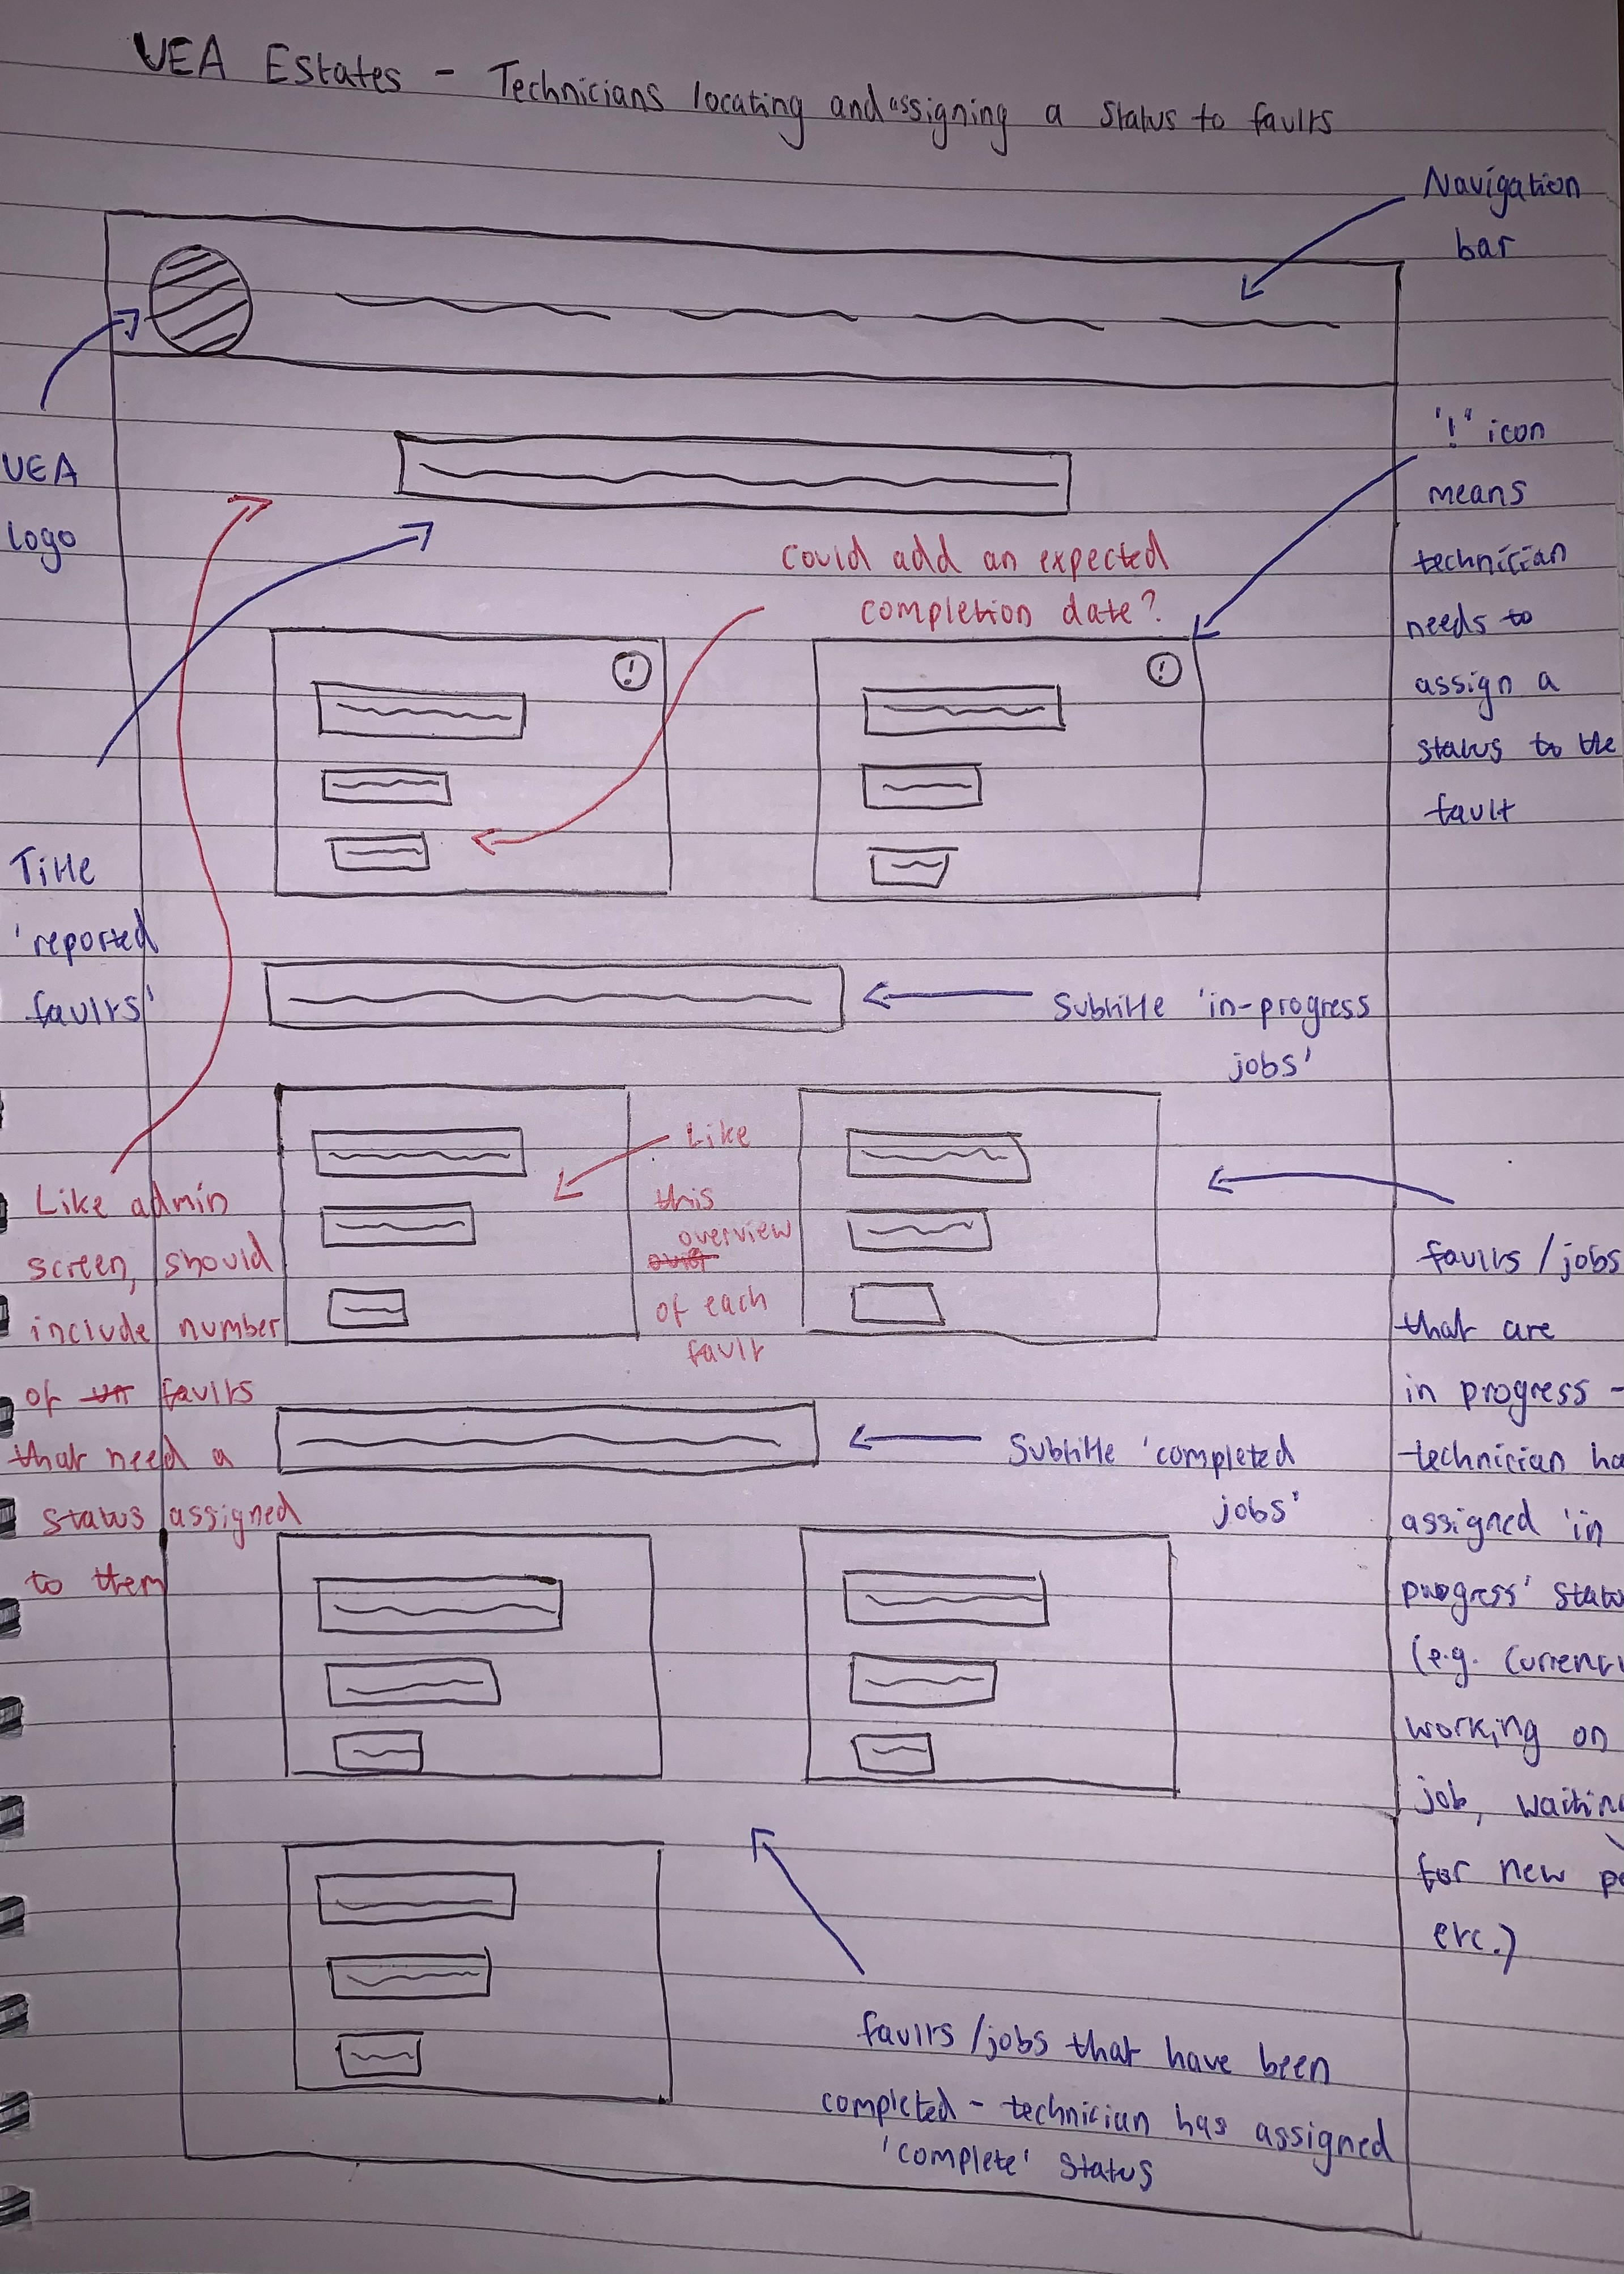 UEA Estates - Technicians locating and assigning a status to faults
Navigation
bar
UEA
logo
'!' icon
means
technician
needs to
assign a
status to the
fault
could add an expected
completion date?
!
!
Title
'reported
faults'
Subtitle 'in-progress
jobs'
Like admin
screen, should
include number
of faults
that need a
status assigned
to them
Like
this
overview
of each
fault
faults/jobs
that are
in progress -
technician ha
assigned 'in
progress' statu
(e.g. current
working on
job, waitin
for new p
etc.)
Subtitle 'completed
jobs'
faults/jobs that have been
completed - technician has assigned
'complete' status